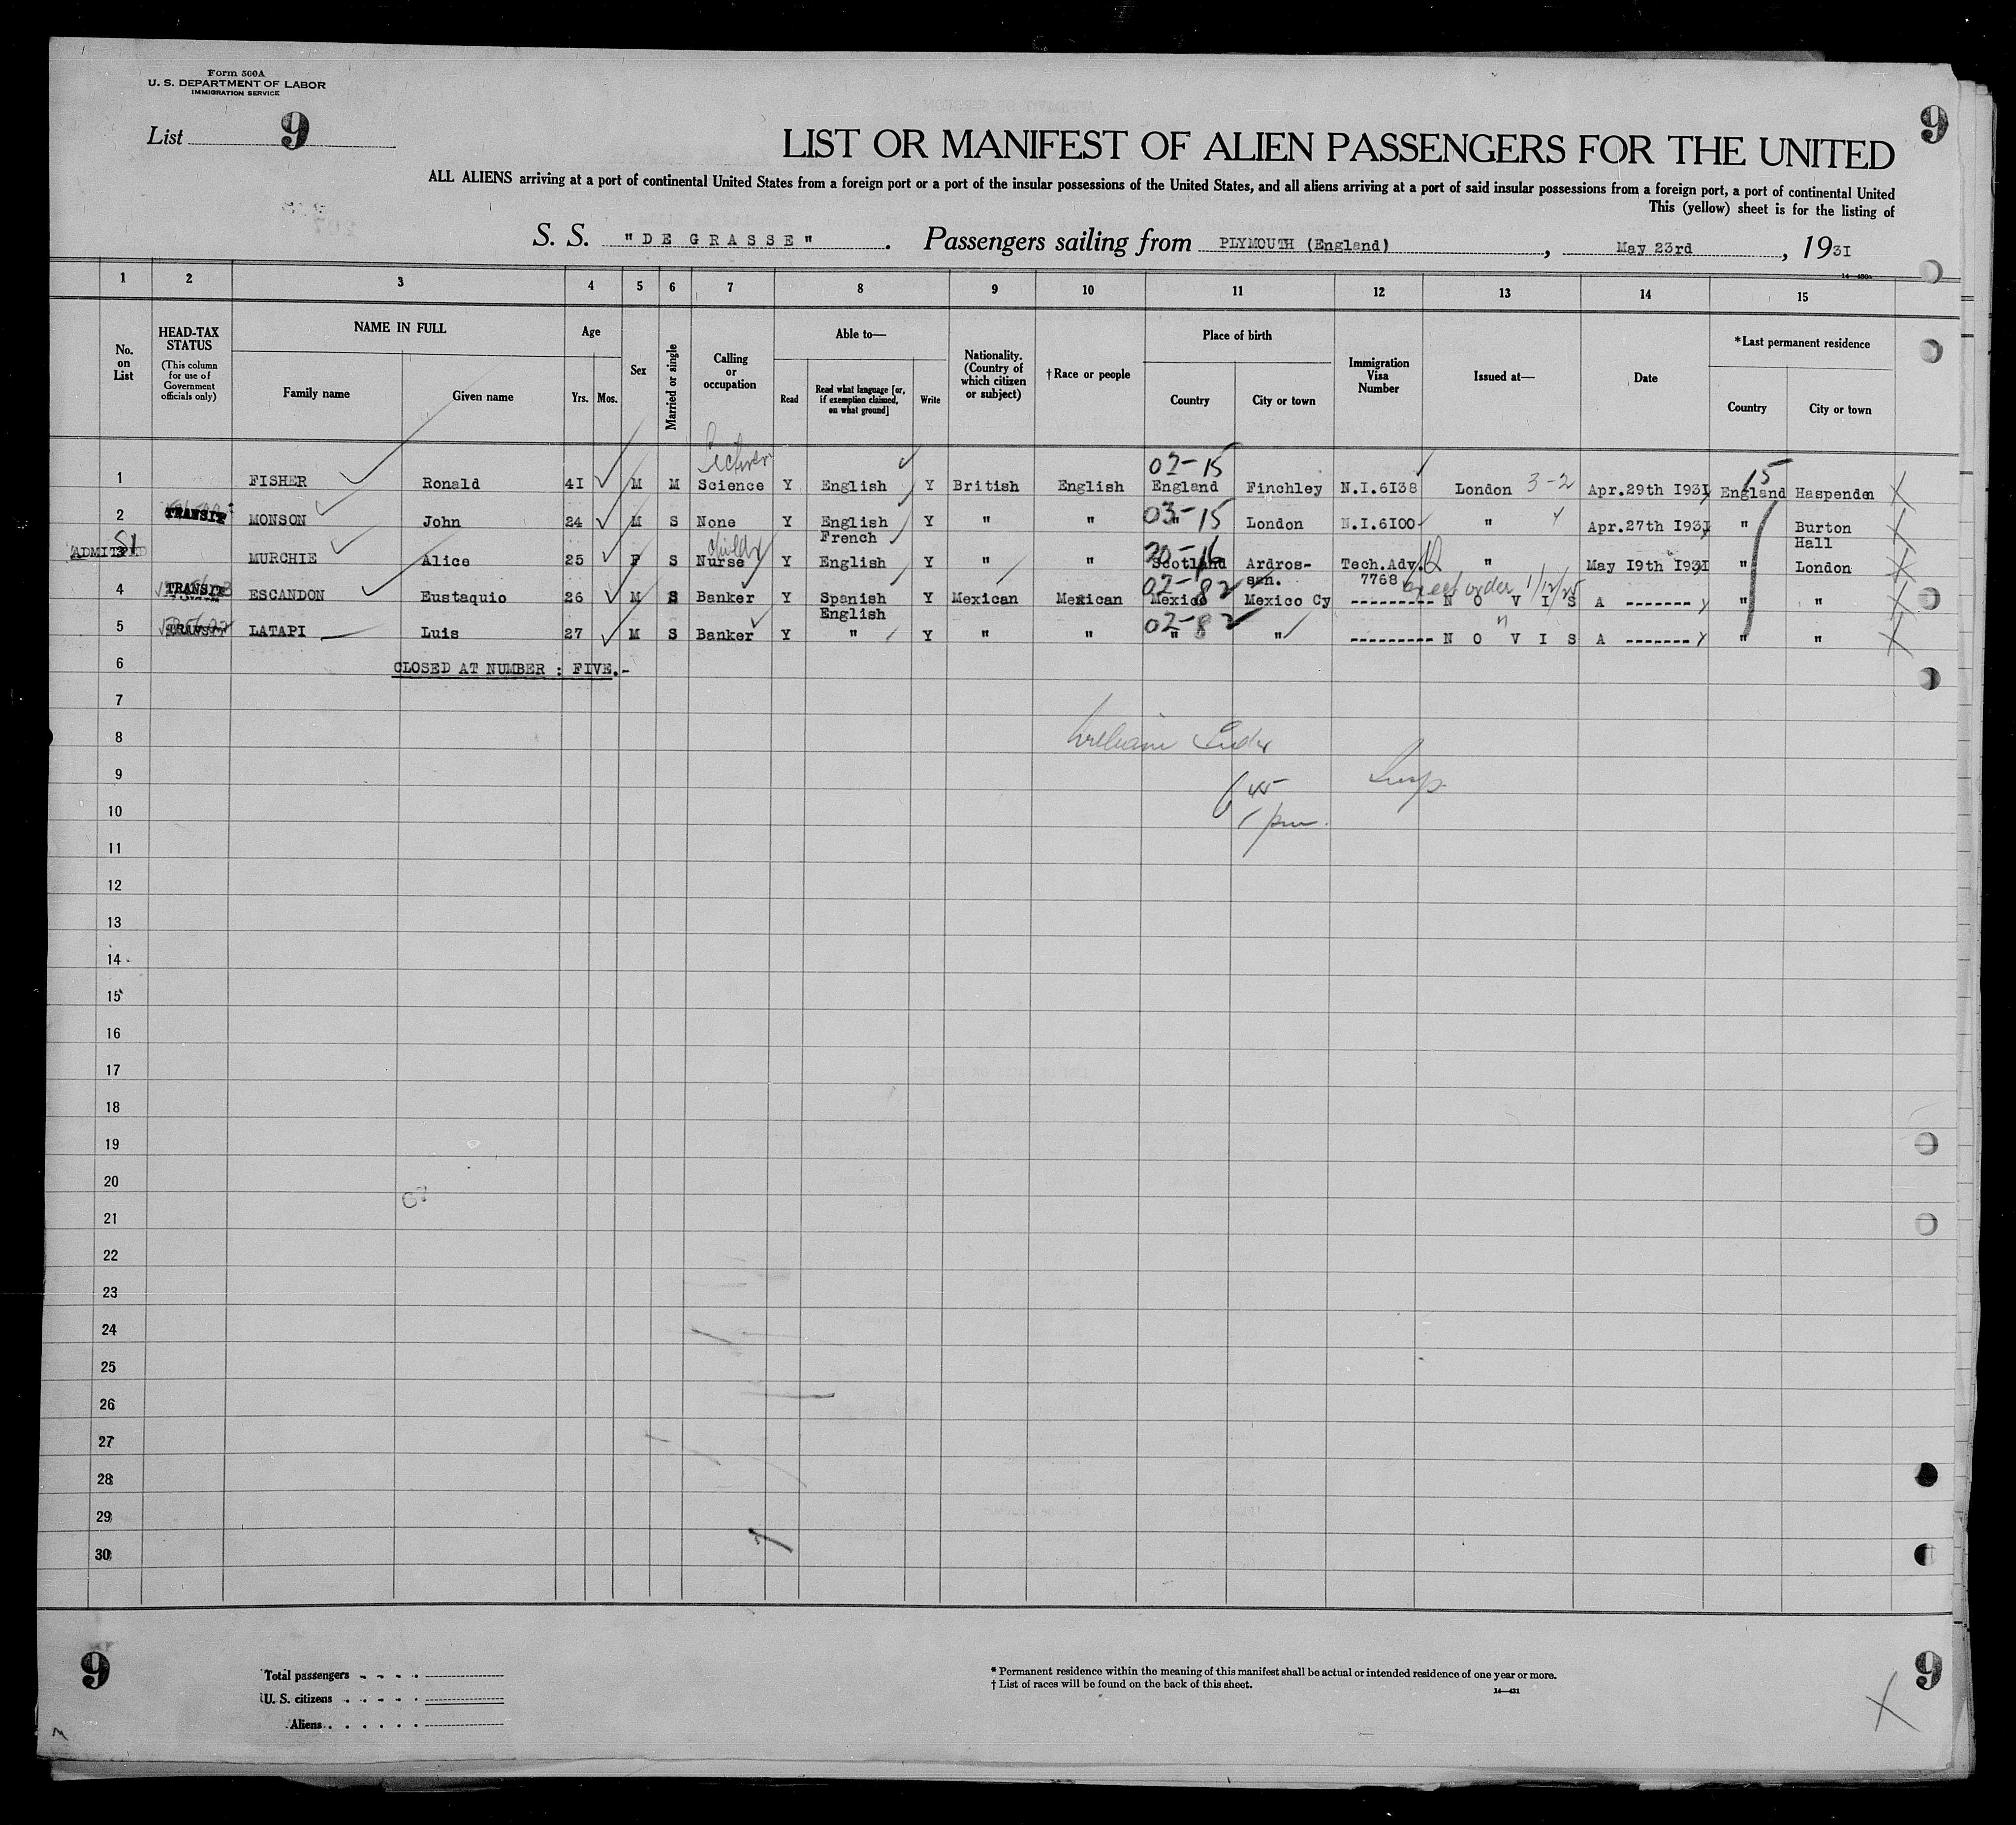 Form 500A
U. S. DEPARTMENT OF LABOR
IMMIGRATION SERVICE
List 9
9
LIST OR MANIFEST OF ALIEN PASSENGERS FOR THE UNITED
ALL ALIENS arriving at a port of continental United States from a foreign port or a port of the insular possessions of the United States, and all aliens arriving at a port of said insular possessions from a foreign port, a port of continental United
This (yellow) sheet is for the listing of
S. S. "DE GRASSE". Passengers sailing from PLYMOUTH (England), May 23rd, 1931
1 2 3 4 5 6 7 8 9 10 11 12 13 14 15
No. on List
HEAD-TAX STATUS (This column for use of Government officials only)
NAME IN FULL
Family name Given name
Age
Yrs. Mos.
Sex
Married or single
Calling or occupation
Able to—
Read Read what language [or, if exemption claimed, on what ground] Write
Nationality. (Country of which citizen or subject)
† Race or people
Place of birth
Country City or town
Immigration Visa Number
Issued at—
Date
* Last permanent residence
Country City or town
Lecturer 02-15 15
1 FISHER Ronald 41 M M Science Y English Y British English England Finchley N.I.6138 London 3-2 Apr.29th 1931 England Haspenden
2 TRANSIT MONSON John 24 M S None Y English French Y " " 03-15 " London N.I.6100 " Apr.27th 1931 " Burton Hall
3 ADMITTED MURCHIE Alice 25 F S child Nurse Y English Y " " 20-16 Scotland Ardrossan. Tech.Adv. 7768 " May 19th 1931 " London
4 TRANSIT ESCANDON Eustaquio 26 M S Banker Y Spanish English Y Mexican Mexican 02-82 Mexico Mexico Cy --------- N O V I S A ------- " "
Exec order 1/12/25
5 TRANSIT LATAPI Luis 27 M S Banker Y " Y " " 02-82 " " --------- N O V I S A ------- " "
6 CLOSED AT NUMBER : FIVE.-
7
8 William
9 Insp.
10
11
12
13
14
15
16
17
18
19
20
21
22
23
24
25
26
27
28
29
30
9
Total passengers
U. S. citizens
Aliens
* Permanent residence within the meaning of this manifest shall be actual or intended residence of one year or more.
† List of races will be found on the back of this sheet.
14—431
9